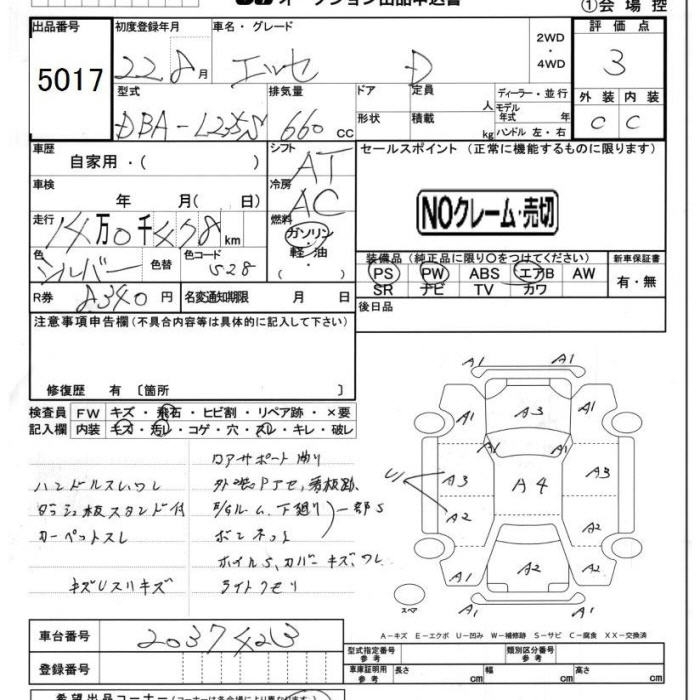 オークション出品申込書
①会場控
出品番号
5017
初度登録年月
22.8月
車名・グレード
エッセ D
2WD
・
4WD
評価点
3
外装 内装
C C
型式
DBA-L235S
排気量
660 CC
ドア
定員
人
形状
積載
kg
ディーラー・並行
モデル年式 年
ハンドル 左・右
車歴
自家用・( )
シフト
AT
セールスポイント (正常に機能するものに限ります)
NOクレーム・売切
車検
年 月( 日)
冷房
AC
走行
万0千 km
燃料
ガソリン
・
軽油
・
( )
色
シルバー
色替
色コード
S28
R券
8340円
名変通知期限 月 日
装備品(純正品に限り〇をつけてください)
PS PW ABS エアB AW
SR ナビ TV カワ
新車保証書
有・無
後日品
注意事項申告欄(不具合内容等は具体的に記入して下さい)
修復歴 有 〔箇所 〕
検査員記入欄
FW キズ・飛石・ヒビ割・リペア跡・×要
内装 キズ・汚レ・コゲ・穴・スレ・キレ・破レ
コアサポート曲り
ハンドルスレ、ワレ
外装PタセS、看板跡、
ダッシュ板スタンド付
E/gルーム、下廻り 一部S
カーペットスレ
ボンネット
ホイルS、カバーキズ、ワレ
キズUスリキズ
ライトクモリ
A1 A1
A1 A3 A1
A1 A1
U A3 A4 A3
A2 A2
A1 A2 A1
A1 A1
スペア
A-キズ E-エクボ U-凹み W-補修跡 S-サビ C-腐食 XX-交換済
車台番号
2037423
登録番号
型式指定番号
参考
類別区分番号
参考
車庫証明用
参考
長さ cm 幅 cm 高さ cm
希望出品コーナー(コーナーは各会場により異なります)